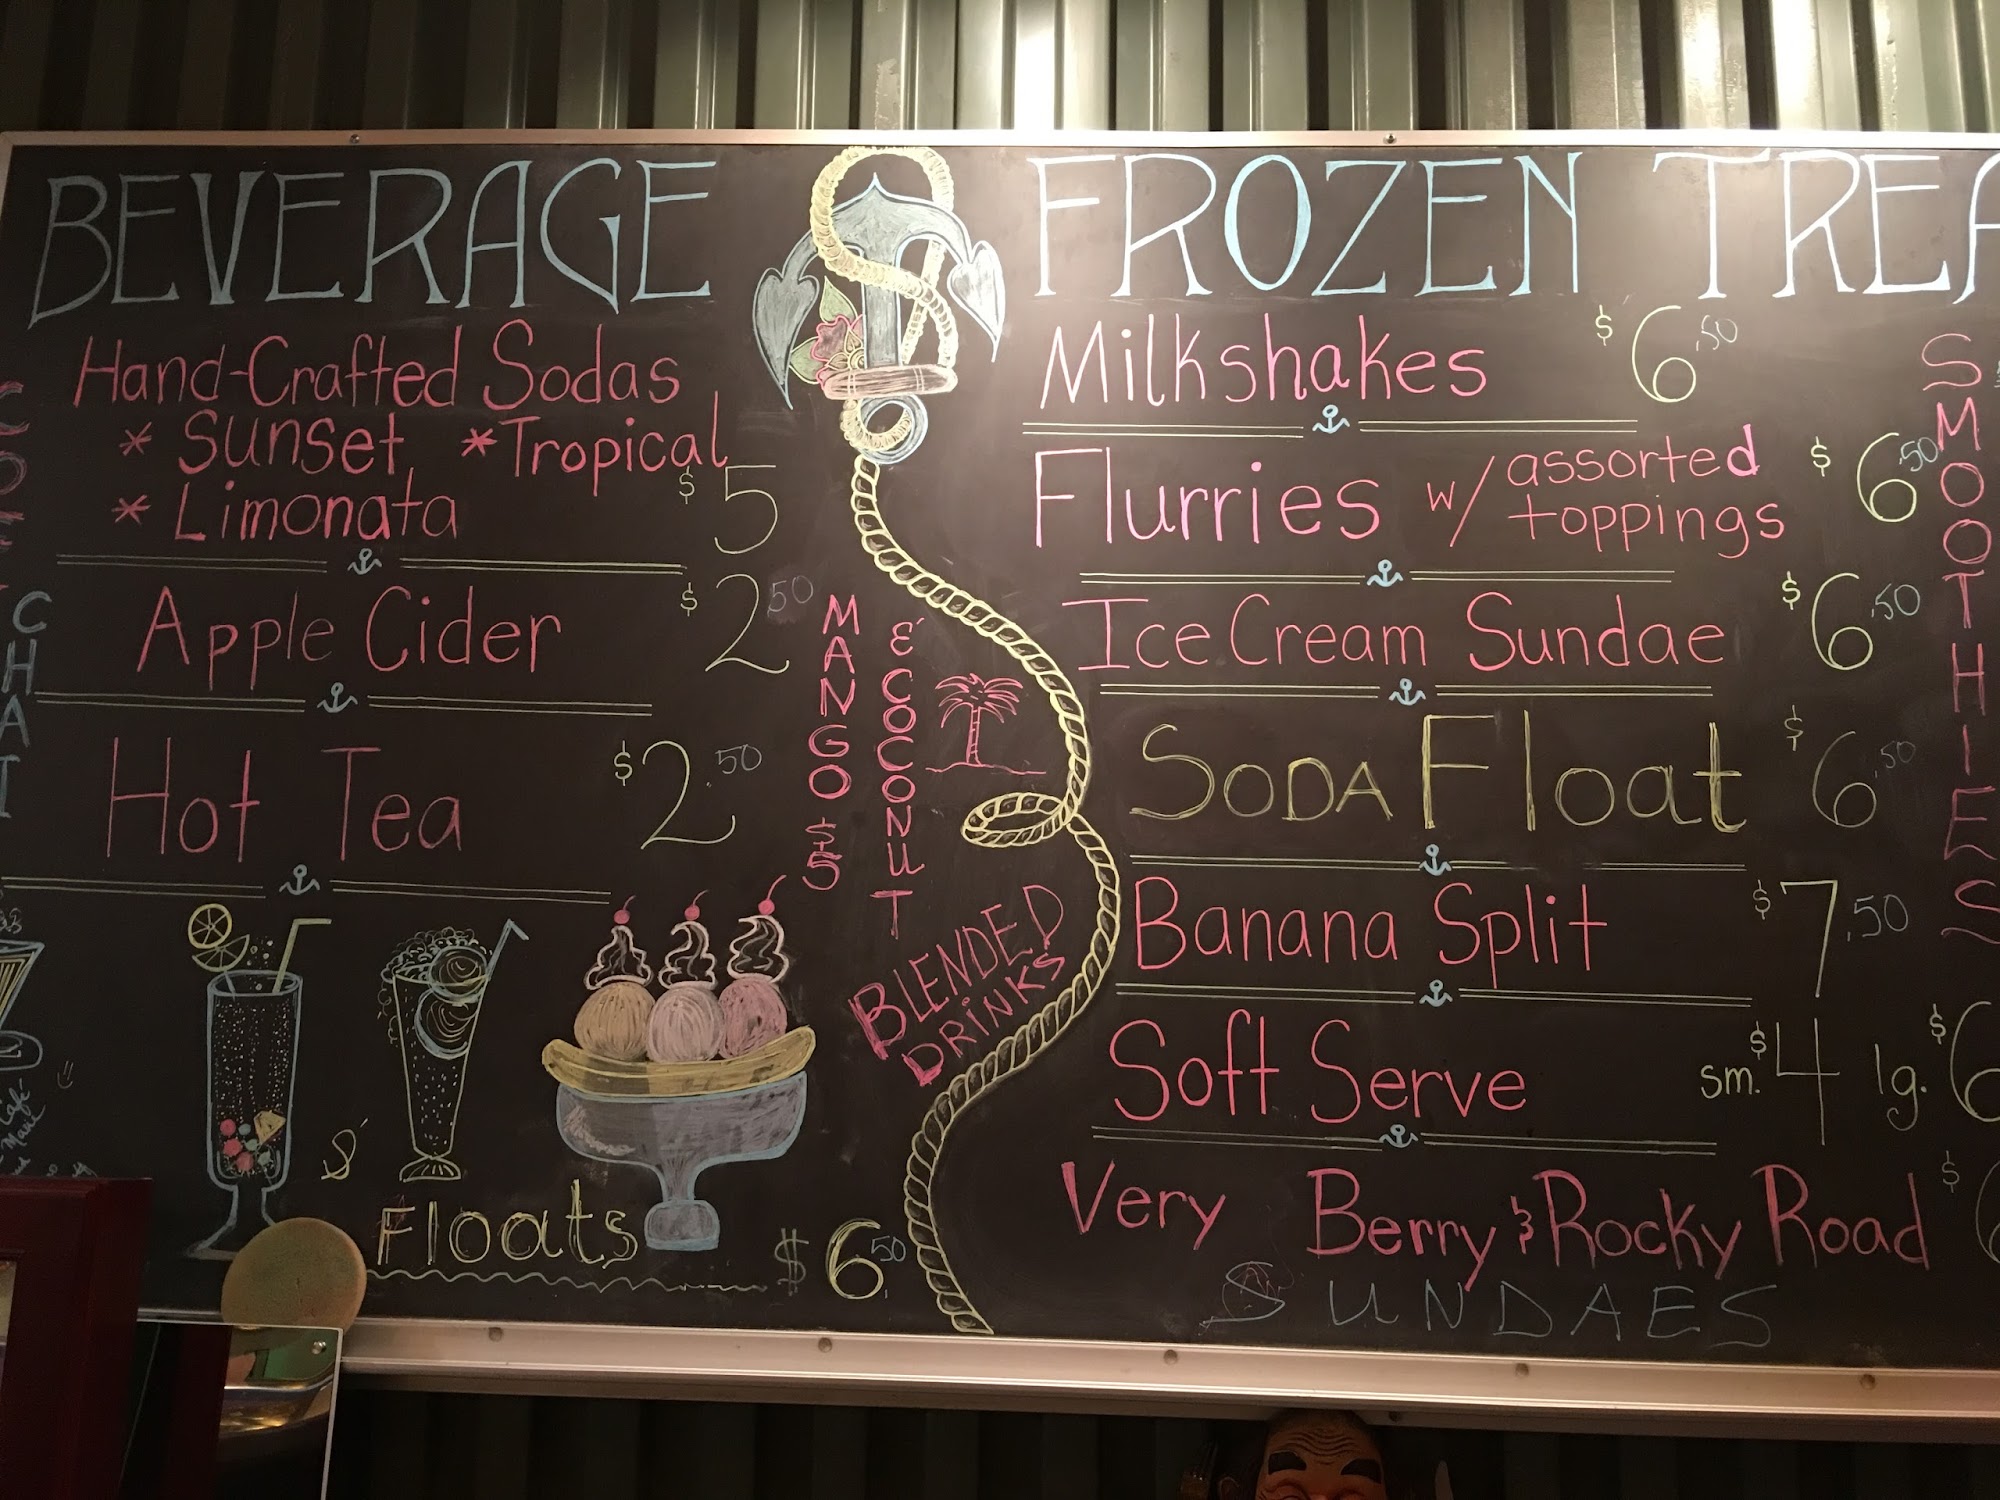 BEVERAGE
Hand-Crafted Sodas
* Sunset *Tropical
* Limonata $5
Apple Cider $2.50
Hot Tea $2.50
CHAI
Floats $6.50
MANGO $5
É COCONUT
BLENDED
DRINKS
FROZEN TREA
Milkshakes $6.50
Flurries w/ assorted
toppings $6.50
Ice Cream Sundae $6.50
SODA Float $6.50
Banana Split $7.50
Soft Serve sm. $4 lg. $6
Very Berry & Rocky Road $6
SUNDAES
SMOOTHIES